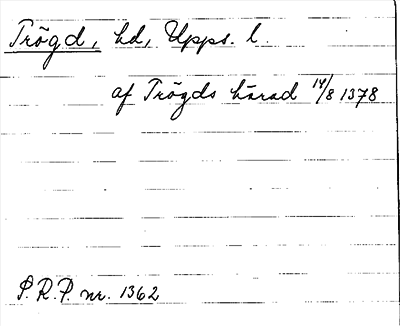 Trögd, hd, Upps. l.
af Trögds härad 14/8 1378
P.R.P. nr. 1362